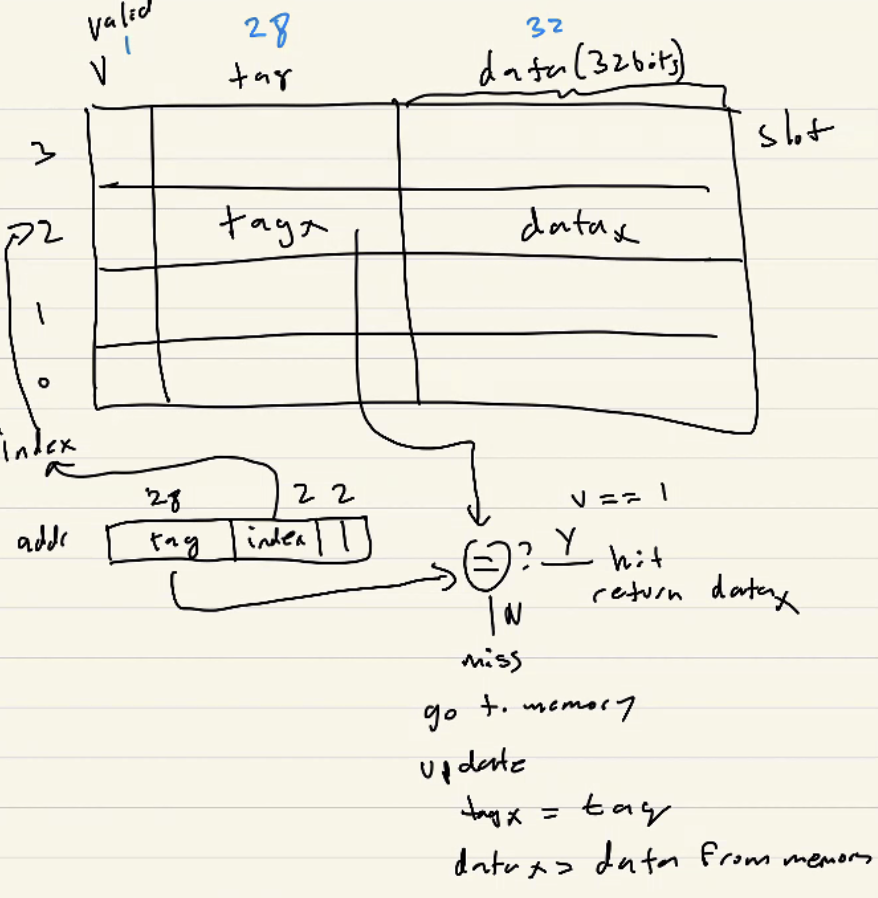 valid
1 28 32
V tag data (32bits)
3 slot
2 tagx datax
1
0
index
28 2 2 v == 1
addr tag index = ? Y hit
return datax
N
miss
go to memory
update
tagx = tag
datax = data from memory